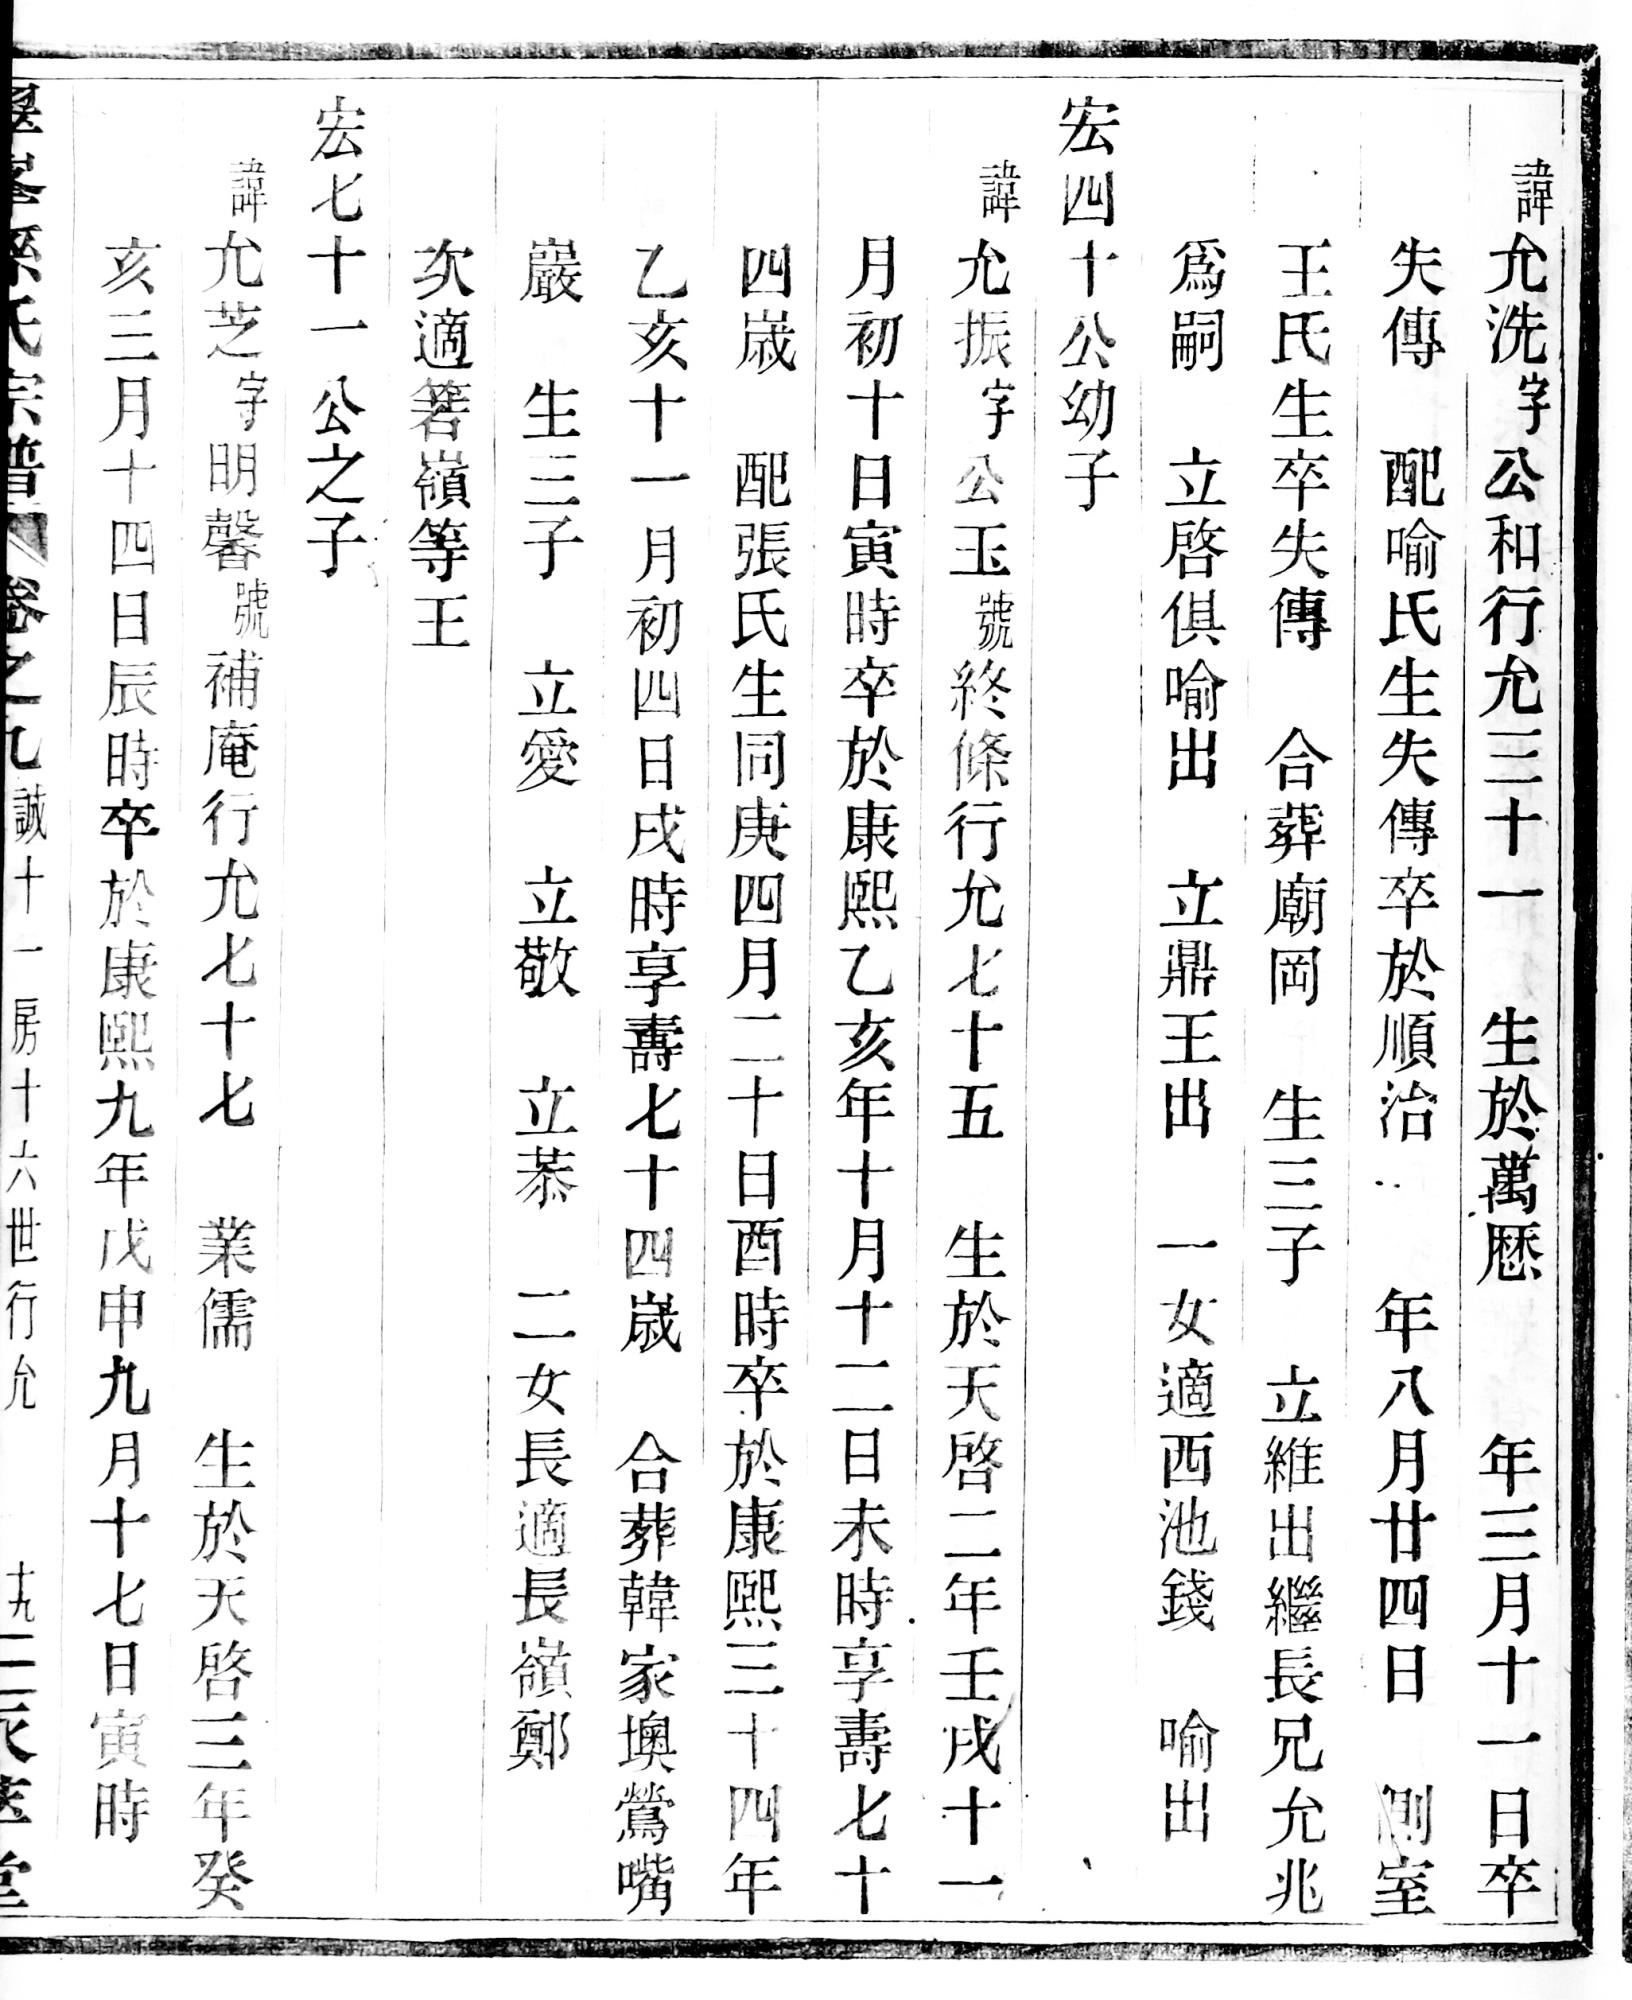 諱允洗字公和行允三十一　生於萬厯　年三月十一日卒
失傳　配喻氏生失傳卒於順治　年八月廿四日　側室
王氏生卒失傳　合葬廟岡　生三子　立維出繼長兄允兆
爲嗣　立啓俱喻出　立鼎王出　一女適西池錢　喻出
宏四十公幼子
諱允振字公玉號終條行允七十五　生於天啓二年壬戌十一
月初十日寅時卒於康熙乙亥年十月十二日未時享壽七十
四歲　配張氏生同庚四月二十日酉時卒於康熙三十四年
乙亥十一月初四日戌時享壽七十四歲　合葬韓家墺鶯嘴
巖　生三子　立愛　立敬　立恭　二女長適長嶺鄭
次適箬嶺等王
宏七十一公之子
諱允芝字明馨號補庵行允七十七　業儒　生於天啓三年癸
亥三月十四日辰時卒於康熙九年戊申九月十七日寅時
孫氏宗譜　卷之九　誠十一房十六世行允　十九　堂